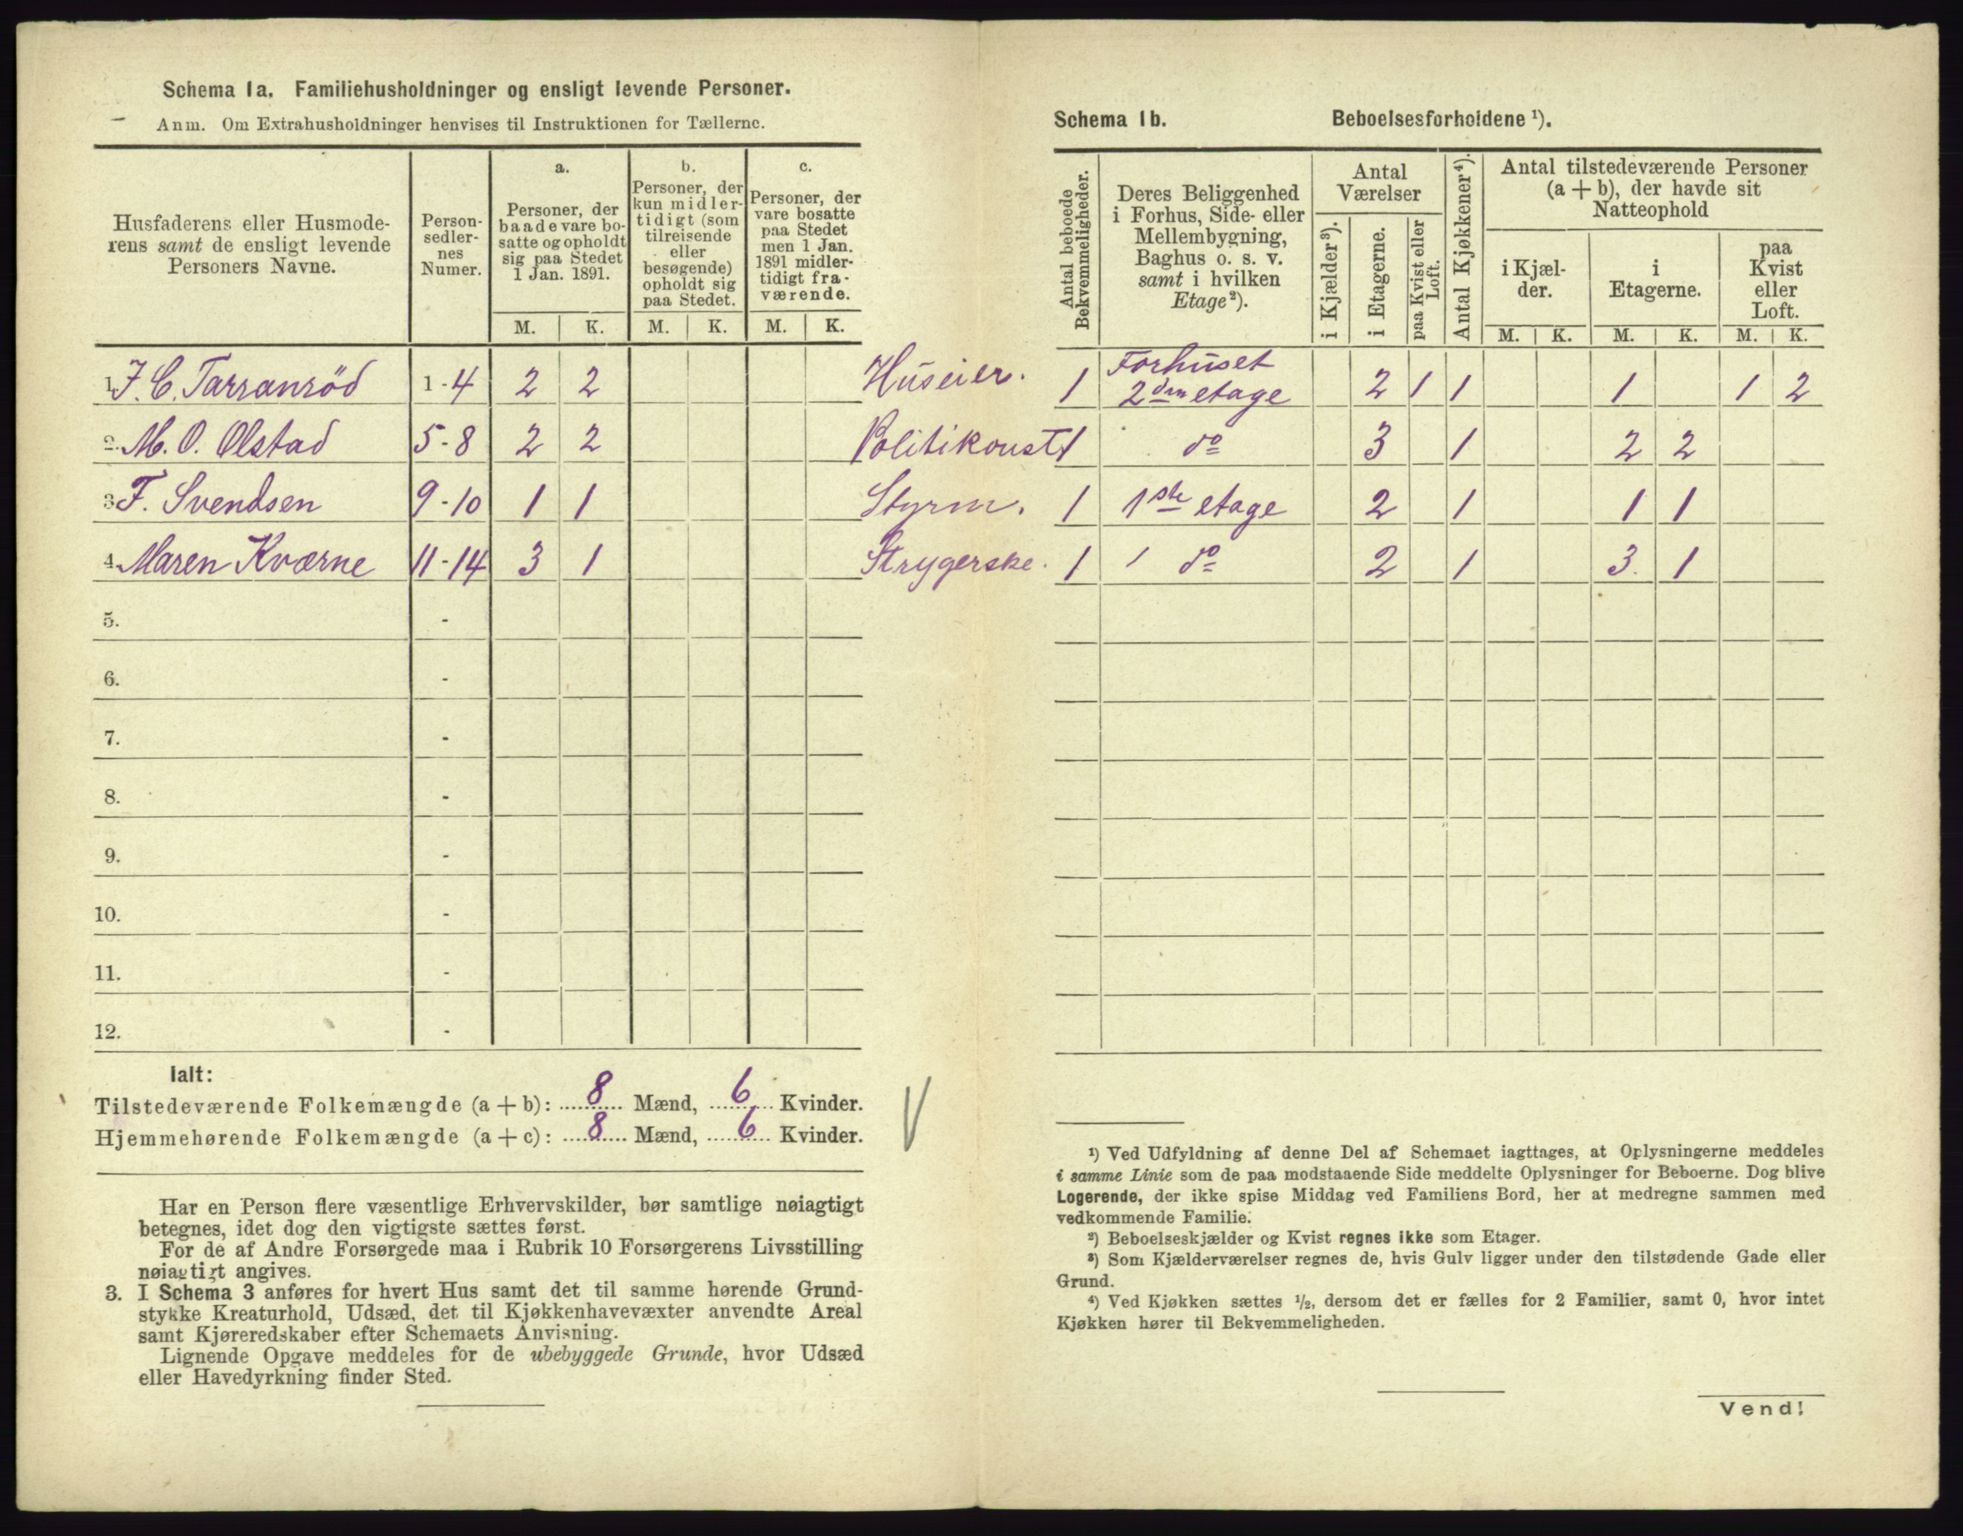 Schema 1a. Familiehusholdninger og ensligt levende Personer.
Anm. Om Extrahusholdninger henvises til Instruktionen for Tællerne.
Husfaderens eller Husmode-
rens samt de ensligt levende
Personers Navne.
Person-
sedler-
nes
Numer.
a.
Personer, der
baade vare bo-
satte og opholdt
sig paa Stedet
1 Jan. 1891.
b.
Personer, der
kun midler-
tidigt (som
tilreisende
eller
besøgende)
opholdt sig
paa Stedet.
c.
Personer, der
vare bosatte
paa Stedet
men 1 Jan.
1891 midler-
tidigt fra-
værende.
M. K. M. K. M. K.
1. J. C. Tarranröd 1-4 2 2 Huseier.
2. M. O. Olstad 5-8 2 2 Politikonst
3. F. Svendsen 9-10 1 1 Styrm.
4. Maren Kværne 11-14 3 1 Strygerske.
5. -
6. -
7. -
8. -
9. -
10. -
11. -
12. -
Ialt:
Tilstedeværende Folkemængde (a + b): 8 Mænd, 6 Kvinder.
Hjemmehørende Folkemængde (a + c): 8 Mænd, 6 Kvinder.
Har en Person flere væsentlige Erhvervskilder, bør samtlige nøiagtigt
betegnes, idet dog den vigtigste sættes først.
For de af Andre Forsørgede maa i Rubrik 10 Forsørgerens Livsstilling
nøiagtigt angives.
3. I Schema 3 anføres for hvert Hus samt det til samme hørende Grund-
stykke Kreaturhold, Udsæd, det til Kjøkkenhavevæxter anvendte Areal
samt Kjøreredskaber efter Schemaets Anvisning.
Lignende Opgave meddeles for de ubebyggede Grunde, hvor Udsæd
eller Havedyrkning finder Sted.
Schema 1b. Beboelsesforholdene ¹).
Antal beboede
Bekvemmeligheder.
Deres Beliggenhed
i Forhus, Side- eller
Mellembygning,
Baghus o. s. v.
samt i hvilken
Etage²).
Antal
Værelser
i Kjælder³).
i Etagerne.
paa Kvist eller
Loft.
Antal Kjøkkener⁴).
Antal tilstedeværende Personer
(a + b), der havde sit
Natteophold
i Kjæl-
der.
i
Etagerne.
paa
Kvist
eller
Loft.
M. K. M. K. M. K.
Forhuset
1 2den etage 2 1 1 1 1 2
1 do 3 1 2 2
1 1ste etage 2 1 1 1
1 do 2 1 3 1
¹) Ved Udfyldning af denne Del af Schemaet iagttages, at Oplysningerne meddeles
i samme Linie som de paa modstaaende Side meddelte Oplysninger for Beboerne. Dog blive
Logerende, der ikke spise Middag ved Familiens Bord, her at medregne sammen med
vedkommende Familie.
²) Beboelseskjælder og Kvist regnes ikke som Etager.
³) Som Kjælderværelser regnes de, hvis Gulv ligger under den tilstødende Gade eller
Grund.
⁴) Ved Kjøkken sættes ¹/₂, dersom det er fælles for 2 Familier, samt 0, hvor intet
Kjøkken hører til Bekvemmeligheden.
Vend!